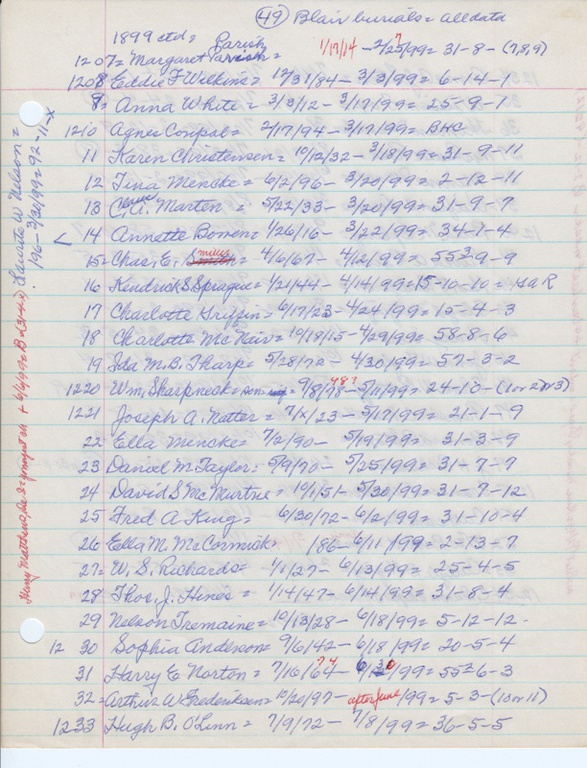 (49) Blair burials = all data
1899 ctd = Parish
1207 = Margaret Parrish = 1/17/14 - 2/25?/99 = 31-8-(7,8,9)
1208 Eddie F Wilkins = 12/31/84 - 3/3/99 = 6-14-1
9 = Anna White = 3/3/12 - 3/17/99 = 25-9-7
1210 Agnes = 2/17/94 - 3/17/99 = BHC
11 Karen Christensen = 10/12/32 - 3/18/99 = 31-9-11
12 Tina Mencke = 6/2/96 - 3/20/99 = 2-12-11
13 C. A. Marten = 5/22/33 - 3/20/99 = 31-9-7
< 14 Annette Bonen = 1/26/16 - 3/22/99 = 34-1-4
15 = Chas. E. Smiley = 4/6/67 - 4/12/99 = 55³-9-9
16 Kendrick S Sprague = 1/21/44 - 4/14/99 = 15-10-10 = GAR
17 Charlotte Griffin = 6/17/23 - 4/24/99 = 15-4-3
18 Charlotte McNair = 10/18/15 - 4/29/99 = 58-8-6
19 Ida M. B. Tharp = 5/28/72 - 4/30/99 = 57-3-2
1220 Wm Sharpneck = 9/8/98 98? - 5/11/99 = 24-10-(1 or 2 or 3)
1221 Joseph A. Natter = 7/x/23 - 5/17/99 = 21-1-9
22 Ella Mencke = 7/2/90 - 5/19/99 = 31-3-9
23 Daniel M Taylor = 5/9/70 - 5/25/99 = 31-7-7
24 David S McMurtne = 10/1/51 - 5/30/99 = 31-7-12
25 Fred A King = 6/30/72 - 6/2/99 = 31-10-4
26 Ella M. McCormick = 186 - 6/11/99 = 2-13-7
27 = W. S. Richards = 1/1/27 - 6/13/99 = 25-4-5
28 Thos. J. Hines = 1/14/47 - 6/14/99 = 31-8-4
29 Nelson Tremaine = 10/13/28 - 6/18/99 = 5-12-12-
12 30 Sophia Anderson = 9/6/42 - 6/18/99 = 20-5-4
31 Harry E Norton = 7/16/64 ?4 - 6/30/99 = 55³-6-3
32 = Arthur W Frederiksen = 10/20/97 - after June/99 = 5-3-(10 or 11)
1233 Hugh B. O'Linn = 7/9/72 - 7/8/99 = 36-5-5
W Nelson =
196 - 3/31/99 = 92-11-x